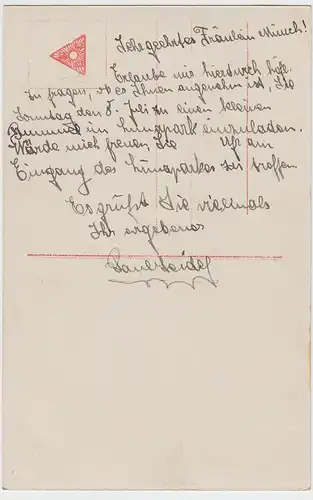 Sehrgeehrtes Fräulein Münch!
Erlaube mir hierdurch höfl.
zu fragen, ob es Ihnen angenehm ist, Sie
Sonntag den 8. Juli zu einen kleinen
Bummel in Lunapark einzuladen.
Würde mich freuen, Sie Uhr am
Eingang des Lunaparkes zu treffen
Es grüßt Sie vielmals
Ihr ergebener
Paul Seidel